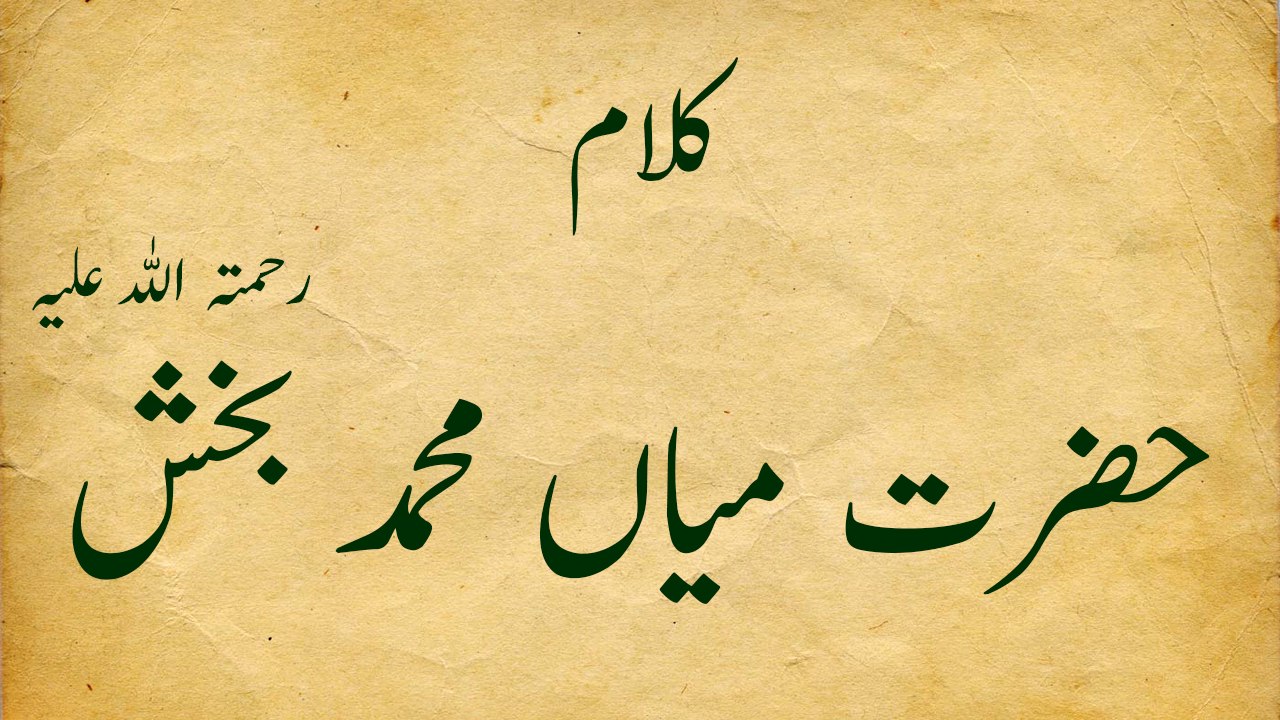 کلام
رحمتہ اللہ علیہ
حضرت میاں محمد بخش